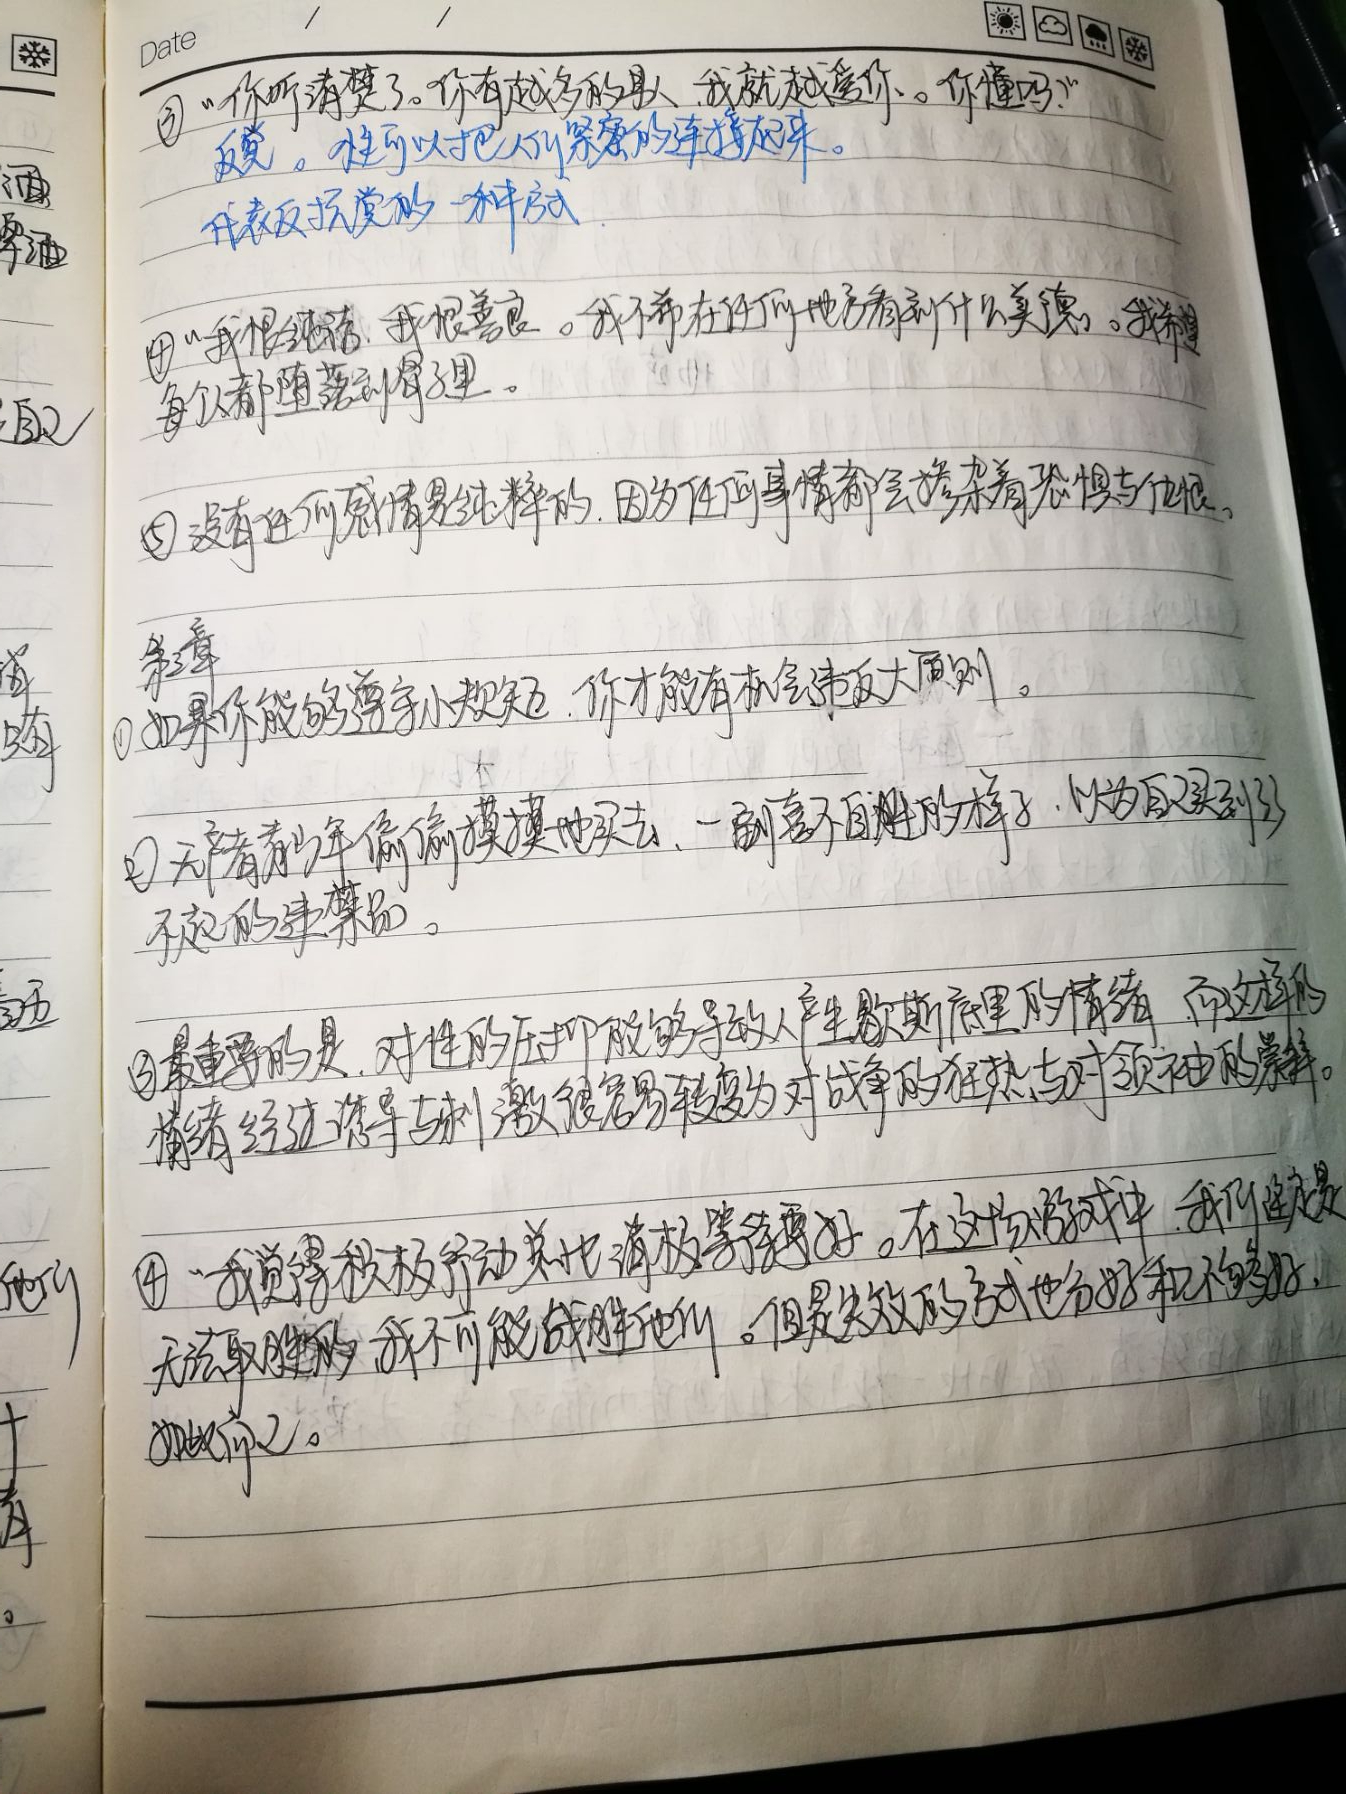 Date / /
③ “你听清楚了。你有越多的男人,我就越爱你。你懂吗?”
反党。性可以把人们紧密的连接起来。
代表反抗党的一种方式.
④ “我恨纯洁,我恨善良。我不希在任何地方看到什么美德。我希望
每个人都堕落到骨子里。
⑤ 没有任何感情是纯粹的,因为任何事情都会掺杂着恐惧与仇恨。
第三章
① 如果你能够遵守小规矩,你才能有机会违反大原则。
② 无产者青少年偷偷摸摸地买去,一副喜不自胜的样子,以为自己买到了
不起的违禁品。
③ 最重要的是,对性的压抑能够导致人产生歇斯底里的情绪,而这样的
情绪经过诱导与刺激很容易转变为对战争的狂热与对领袖的崇拜。
④ “我觉得积极行动总比消极等待要好。在这场游戏中,我们注定是
无法取胜的,我不可能战胜他们。但是失败的方式也分好和不够好,
如此而已。
酒
自己
他们
十
。